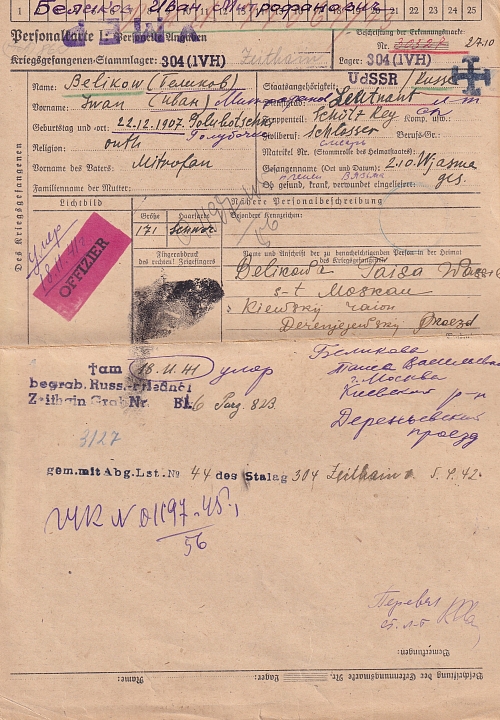 1 Беликов Иван Митрофанович 25
Personalkarte I: Personelle Angaben
Kriegsgefangenen-Stammlager: 304 (IVH) Zeithain
Beschriftung der Erkennungsmarke:
Nr. 2710
Lager: 304 (IVH)
Des Kriegsgefangenen
Name: Belikow (Беликов)
Vorname: Iwan (Иван)
Geburtstag und -ort: 22.12.1907.
Religion: orth
Vorname des Vaters: Mitrofan
Familienname der Mutter:
Staatsangehörigkeit: UdSSR / Russe
Dienstgrad: Leutnant л-т
Truppenteil: Schütz Reg Komp. usw.:
Zivilberuf: Schlosser Berufs-Gr.:
слесарь
Matrikel Nr. (Stammrolle des Heimatstaates):
Gefangennahme (Ort und Datum): 2.10. Wjasma
Вязьма
Ob gesund, krank, verwundet eingeliefert: ges.
Lichtbild
Nähere Personalbeschreibung
Größe Haarfarbe Besondere Kennzeichen:
171 Schwarz
умер
18.11.41
OFFIZIER
Fingerabdruck
des rechten! Zeigefingers
Name und Anschrift der zu benachrichtigenden Person in der Heimat
des Kriegsgefangenen
Belikowa Taisa
st Moskau
Kiewsky raion
Derenjejewsky Proezd
†am 18.11.41 умер
begrab. Russ.-Friedhof
Zeithain Grab Nr. Bl. 6 Parz. 823.
Беликова
Таиса Васильевна
г. Москва
Киевский р-н
Дереньевский
проезд
3127
gem. mit Abg. Lst. № 44 des Stalag 304 Zeithain v. 5.4.42.
№ 01197-45г
56
Перевел
ст. л-т
Bemerkungen:
Beschriftung der Erkennungsmarke Nr. Lager: Name: